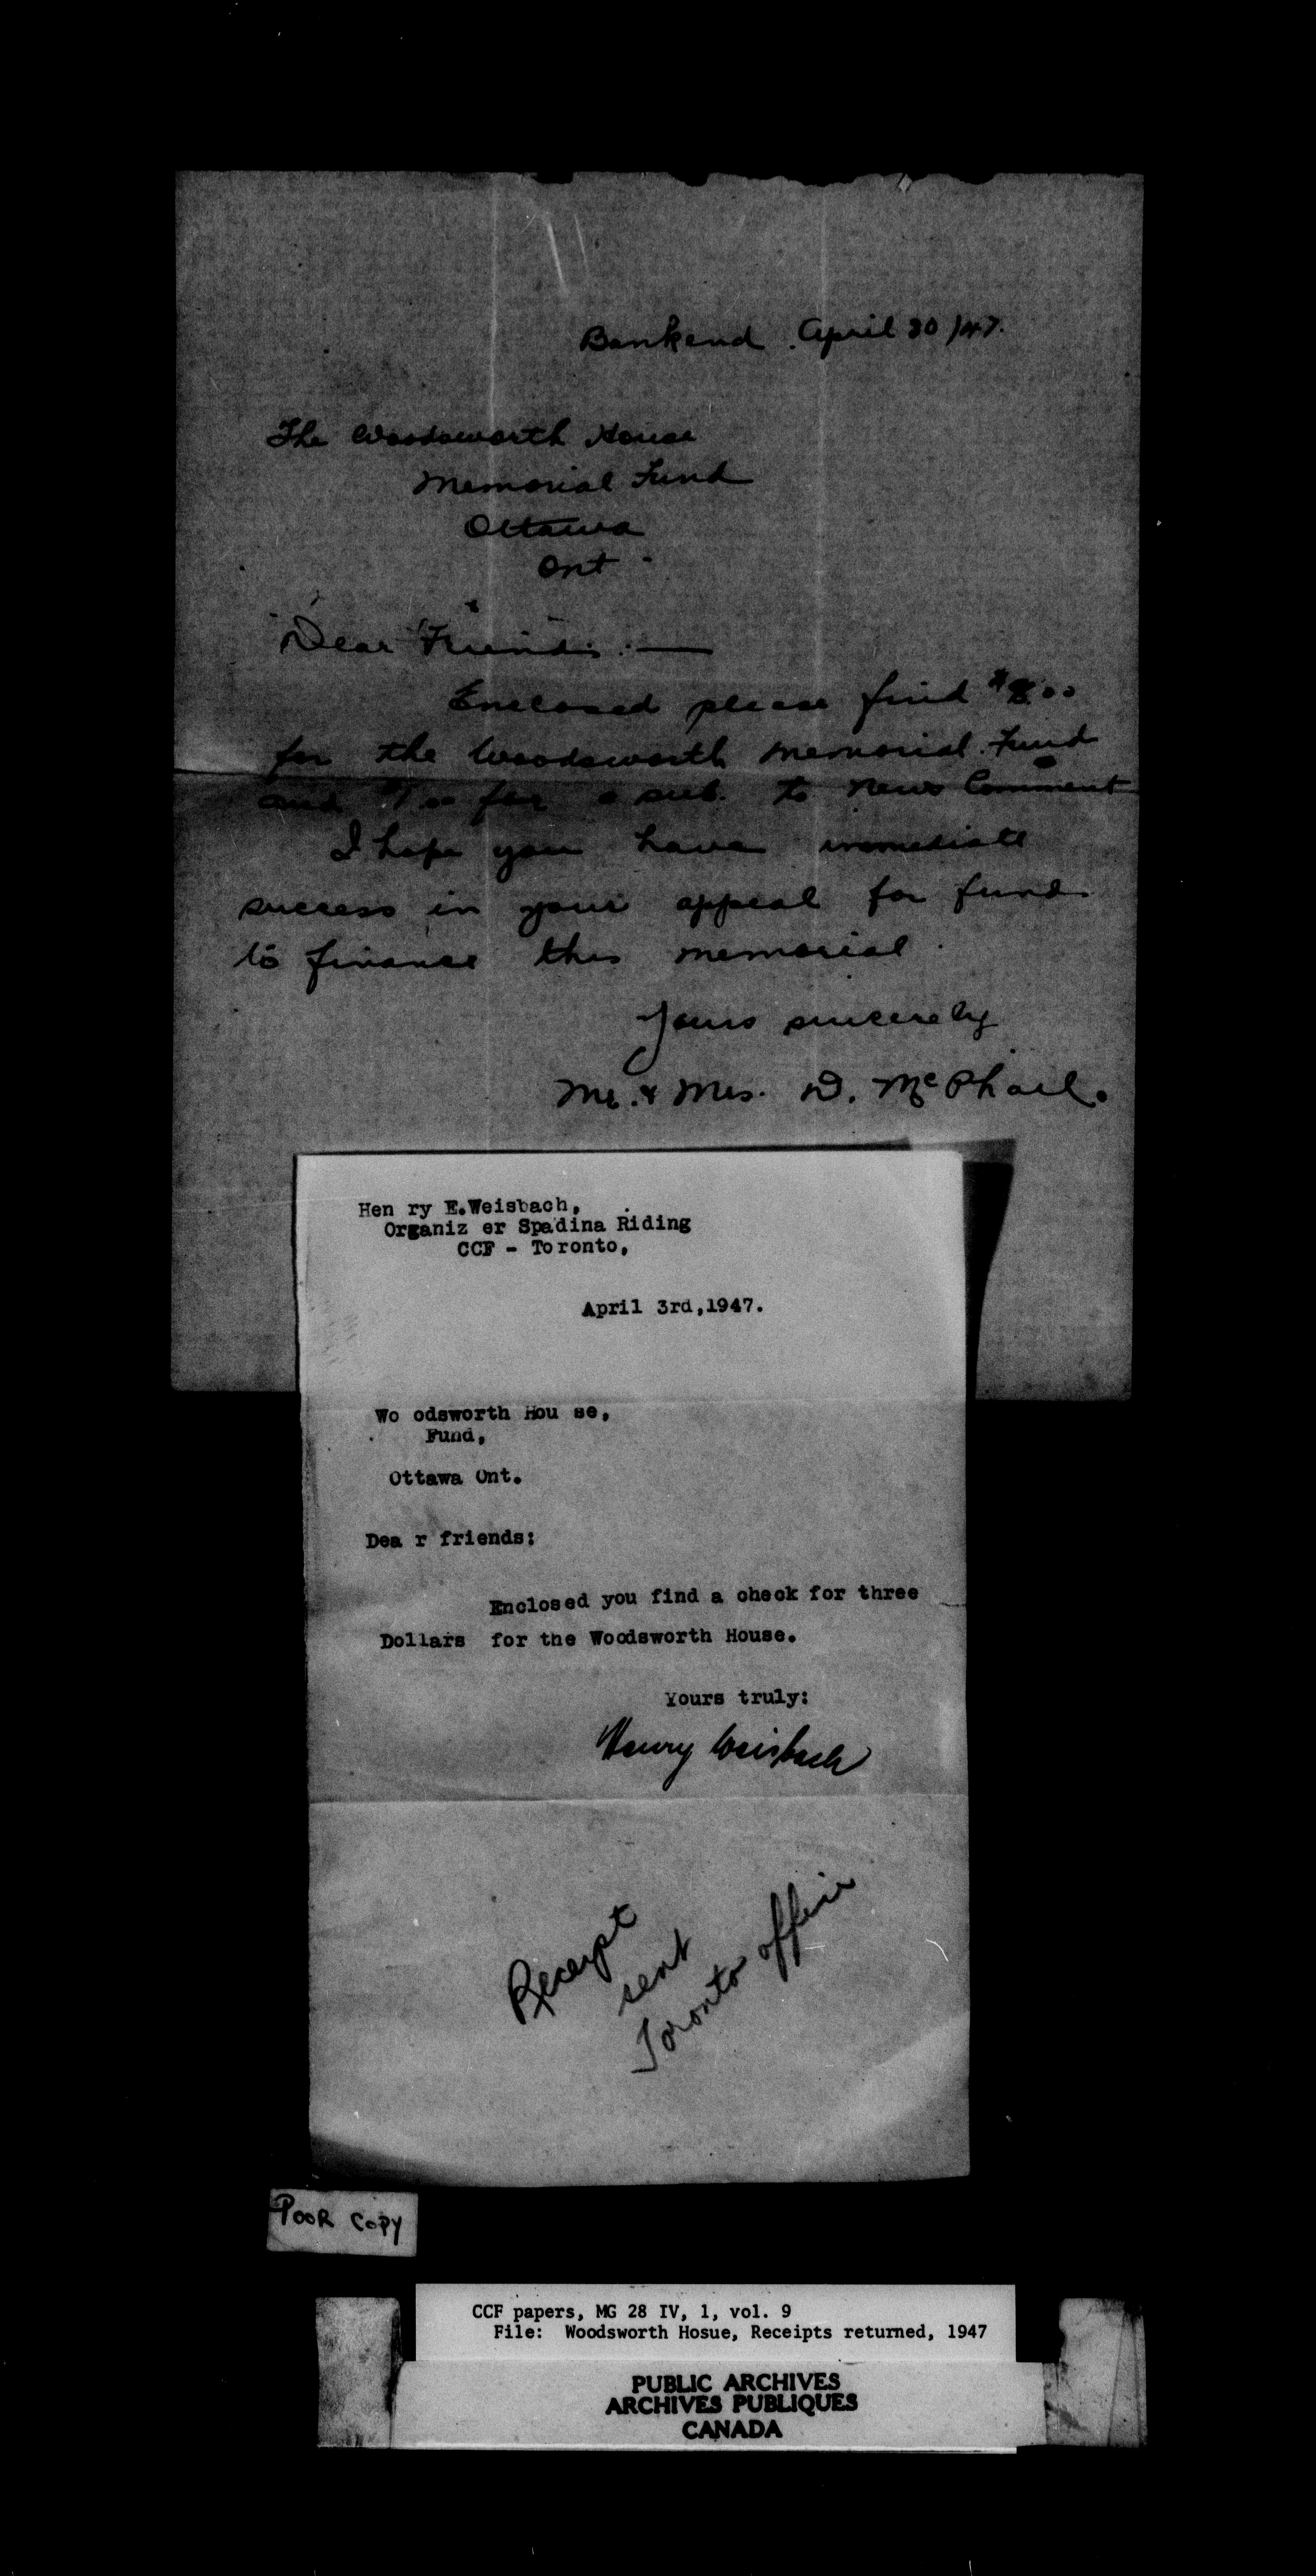 Bankend. April 30/47.
The Woodsworth House
Memorial Fund
Ottawa
Ont.
Dear Friends:—
Enclosed please find $8.00
for the Woodsworth Memorial Fund
and $1.00 for a sub. to News Comment
I hope you have immediate
success in your appeal for funds
to finance this memorial.
Yours sincerely
Mr. & Mrs. D. McPhail.
Hen ry E.Weisbach,
Organiz er Spadina Riding
CCF - Toronto,
April 3rd,1947.
Wo odsworth Hou se,
Fund,
Ottawa Ont.
Dea r friends:
Enclosed you find a check for three
Dollars for the Woodsworth House.
Yours truly:
Henry Weisbach
Receipt
sent
Toronto office
POOR COPY
CCF papers, MG 28 IV, 1, vol. 9
File: Woodsworth Hosue, Receipts returned, 1947
PUBLIC ARCHIVES
ARCHIVES PUBLIQUES
CANADA